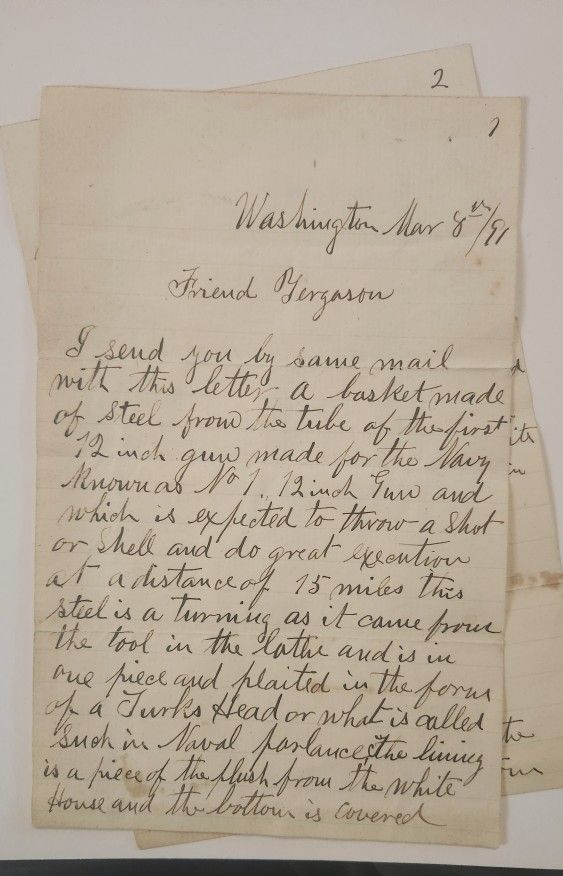 2
1
Washington Mar 8th/91
Friend Yergason
I send you by same mail
with this letter a basket made
of steel from the tube of the first
12 inch gun made for the Navy
Known as No 1. 12 inch Gun and
which is expected to throw a shot
or shell and do great execution
at a distance of 15 miles this
steel is a turning as it came from
the tool in the lathe and is in
one piece and plaited in the form
of a Turks Head or what is called
such in Naval parlance, the lining
is a piece of the plush from the white
House and the bottom is covered